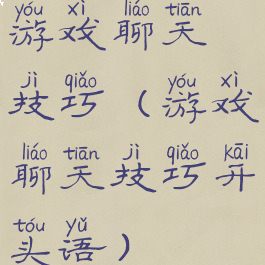 yóu xì liáo tiān
游戏聊天
jì qiǎo yóu xì
技巧（游戏
liáo tiān jì qiǎo kāi
聊天技巧开
tóu yǔ
头语）